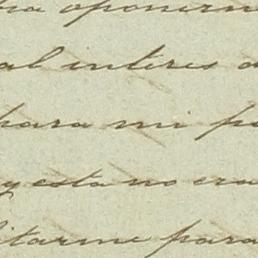 oponern
al interes
para mi p
y esta no era
itarme para